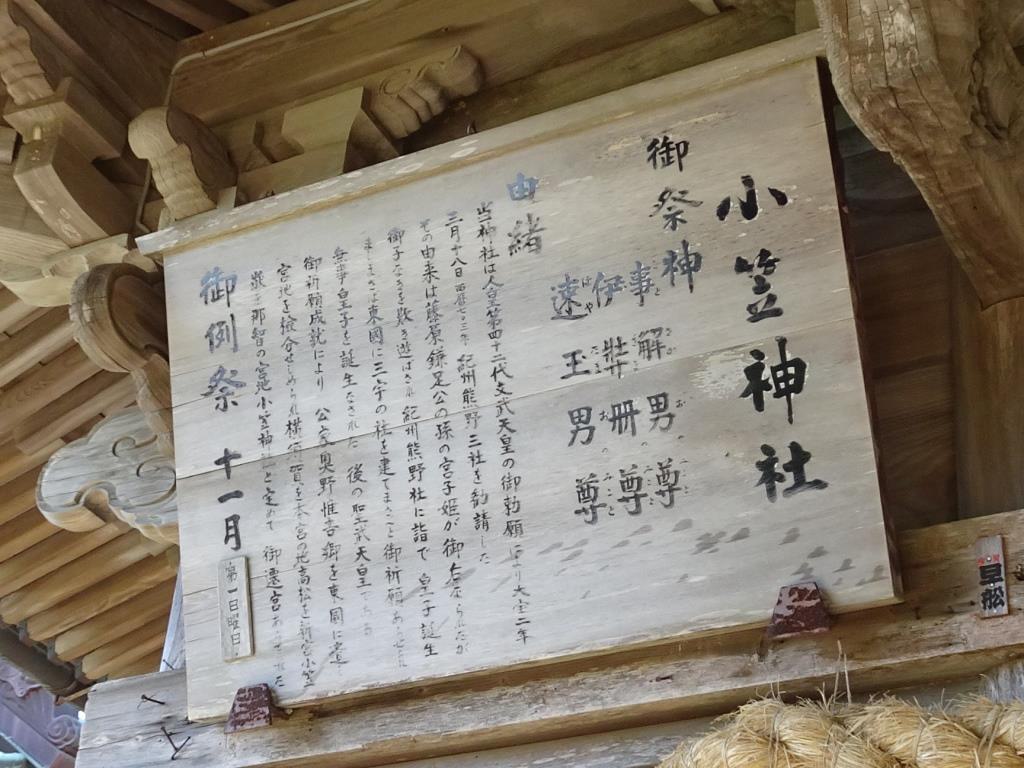 小笠神社
御祭神
事解男尊
伊弉冊尊
速玉男尊
由緒
当神社は人皇第四十二代文武天皇の御勅願により大宝二年
三月十八日西歴七〇二年紀州熊野三社を勧請した
その由来は藤原鎌足公の孫の宮子姫が御后なられたが
御子なきを歎き遊ばされ紀州熊野社に詣で皇子誕生
ましまさば東國に三宇の社を建てまさむと御祈願あらせられ
無事皇子を誕生なされた 後の聖武天皇である
御祈願成就により 公家奥野惟吉卿を東國に
宮地を檢分せしめられ横須賀を本宮の地高松を新宮小笠
嶽を那智の宮地小笠神社と定めて 御遷宮あらせられた
御例祭 十一月
第一日曜日
早舩